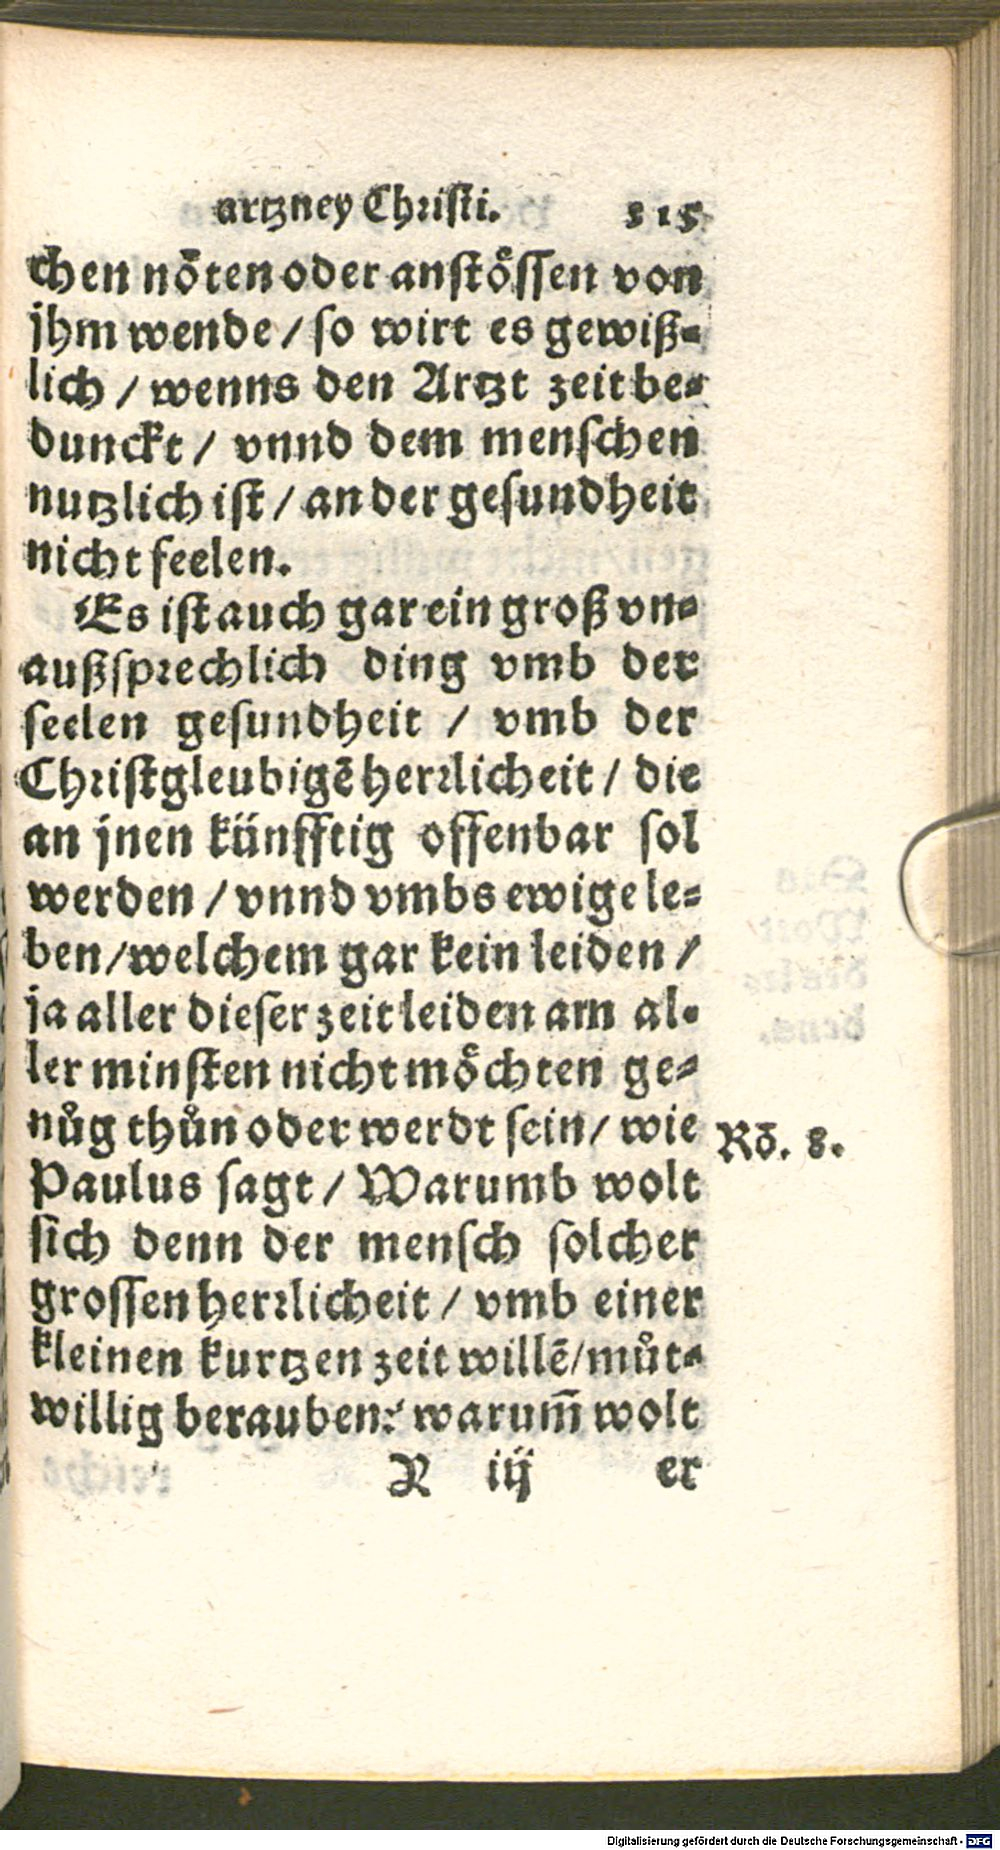 artzney Christi. 515
chen nöten oder anstössen von
jhm wende / so wirt es gewiß⸗
lich / wenns den Artzt zeit be⸗
dunckt / vnnd dem menschen
nutzlich ist / an der gesundheit
nicht feelen.
Es ist auch gar ein groß vn⸗
außsprechlich ding vmb der
seelen gesundheit / vmb der
Christgleubigē herrlicheit / die
an jnen künfftig offenbar sol
werden / vnnd vmbs ewige le⸗
ben / welchem gar kein leiden /
ja aller dieser zeit leiden am al⸗
ler minsten nicht möchten ge⸗
nůg thůn oder werdt sein / wie
Paulus sagt / Warumb wolt
sich denn der mensch solcher
grossen herrlicheit / vmb einer
kleinen kurtzen zeit willē / můt⸗
willig berauben? warum̄ wolt
Rō. 8.
R iij er
Digitalisierung gefördert durch die Deutsche Forschungsgemeinschaft - DFG